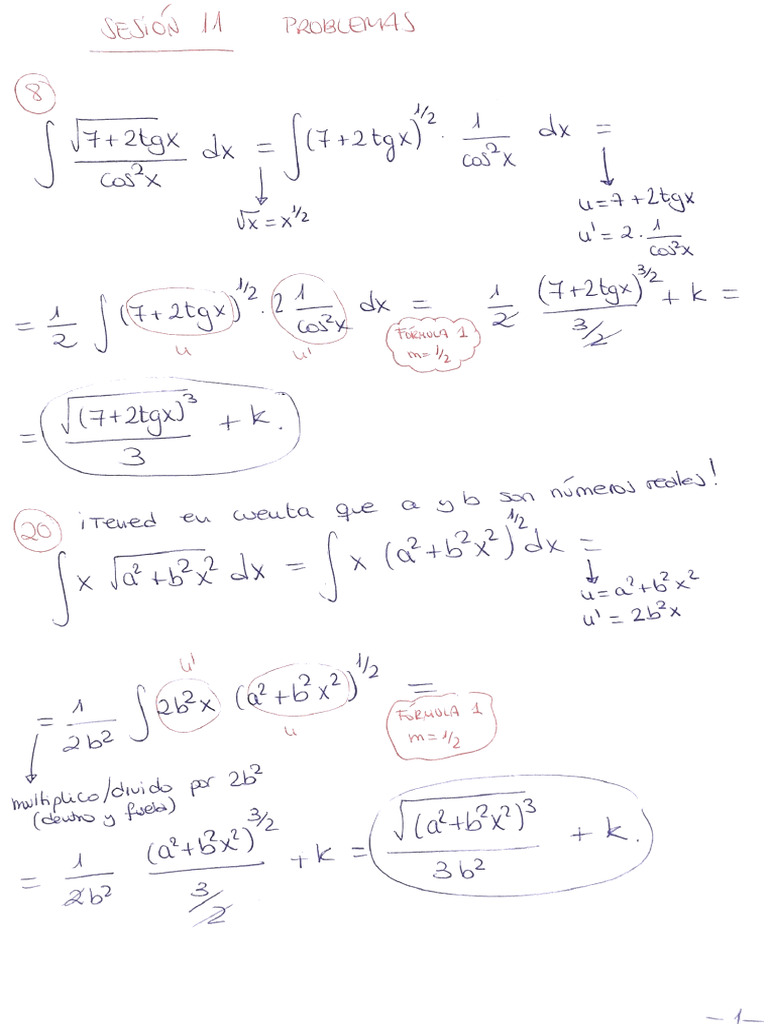 SESIÓN 11 PROBLEMAS
8
∫ √(7+2tgx) / cos²x dx = ∫ (7+2tgx)^1/2 · 1/cos²x dx =
√x = x^1/2
u=7+2tgx
u' = 2 · 1/cos²x
= 1/2 ∫ (7+2tgx)^1/2 · 2 1/cos²x dx = 1/2 (7+2tgx)^3/2 / 3/2 + k =
u u'
FÓRMULA 1
m=1/2
= √(7+2tgx)³ / 3 + k.
20 ¡Tened en cuenta que a y b son números reales!
∫ x √a²+b²x² dx = ∫ x (a²+b²x²)^1/2 dx =
u=a²+b²x²
u' = 2b²x
u'
= 1/2b² ∫ 2b²x (a²+b²x²)^1/2 =
u
FÓRMULA 1
m=1/2
multiplico/divido por 2b²
(dentro y fuera)
= 1/2b² (a²+b²x²)^3/2 / 3/2 + k = √(a²+b²x²)³ / 3b² + k.
-1-